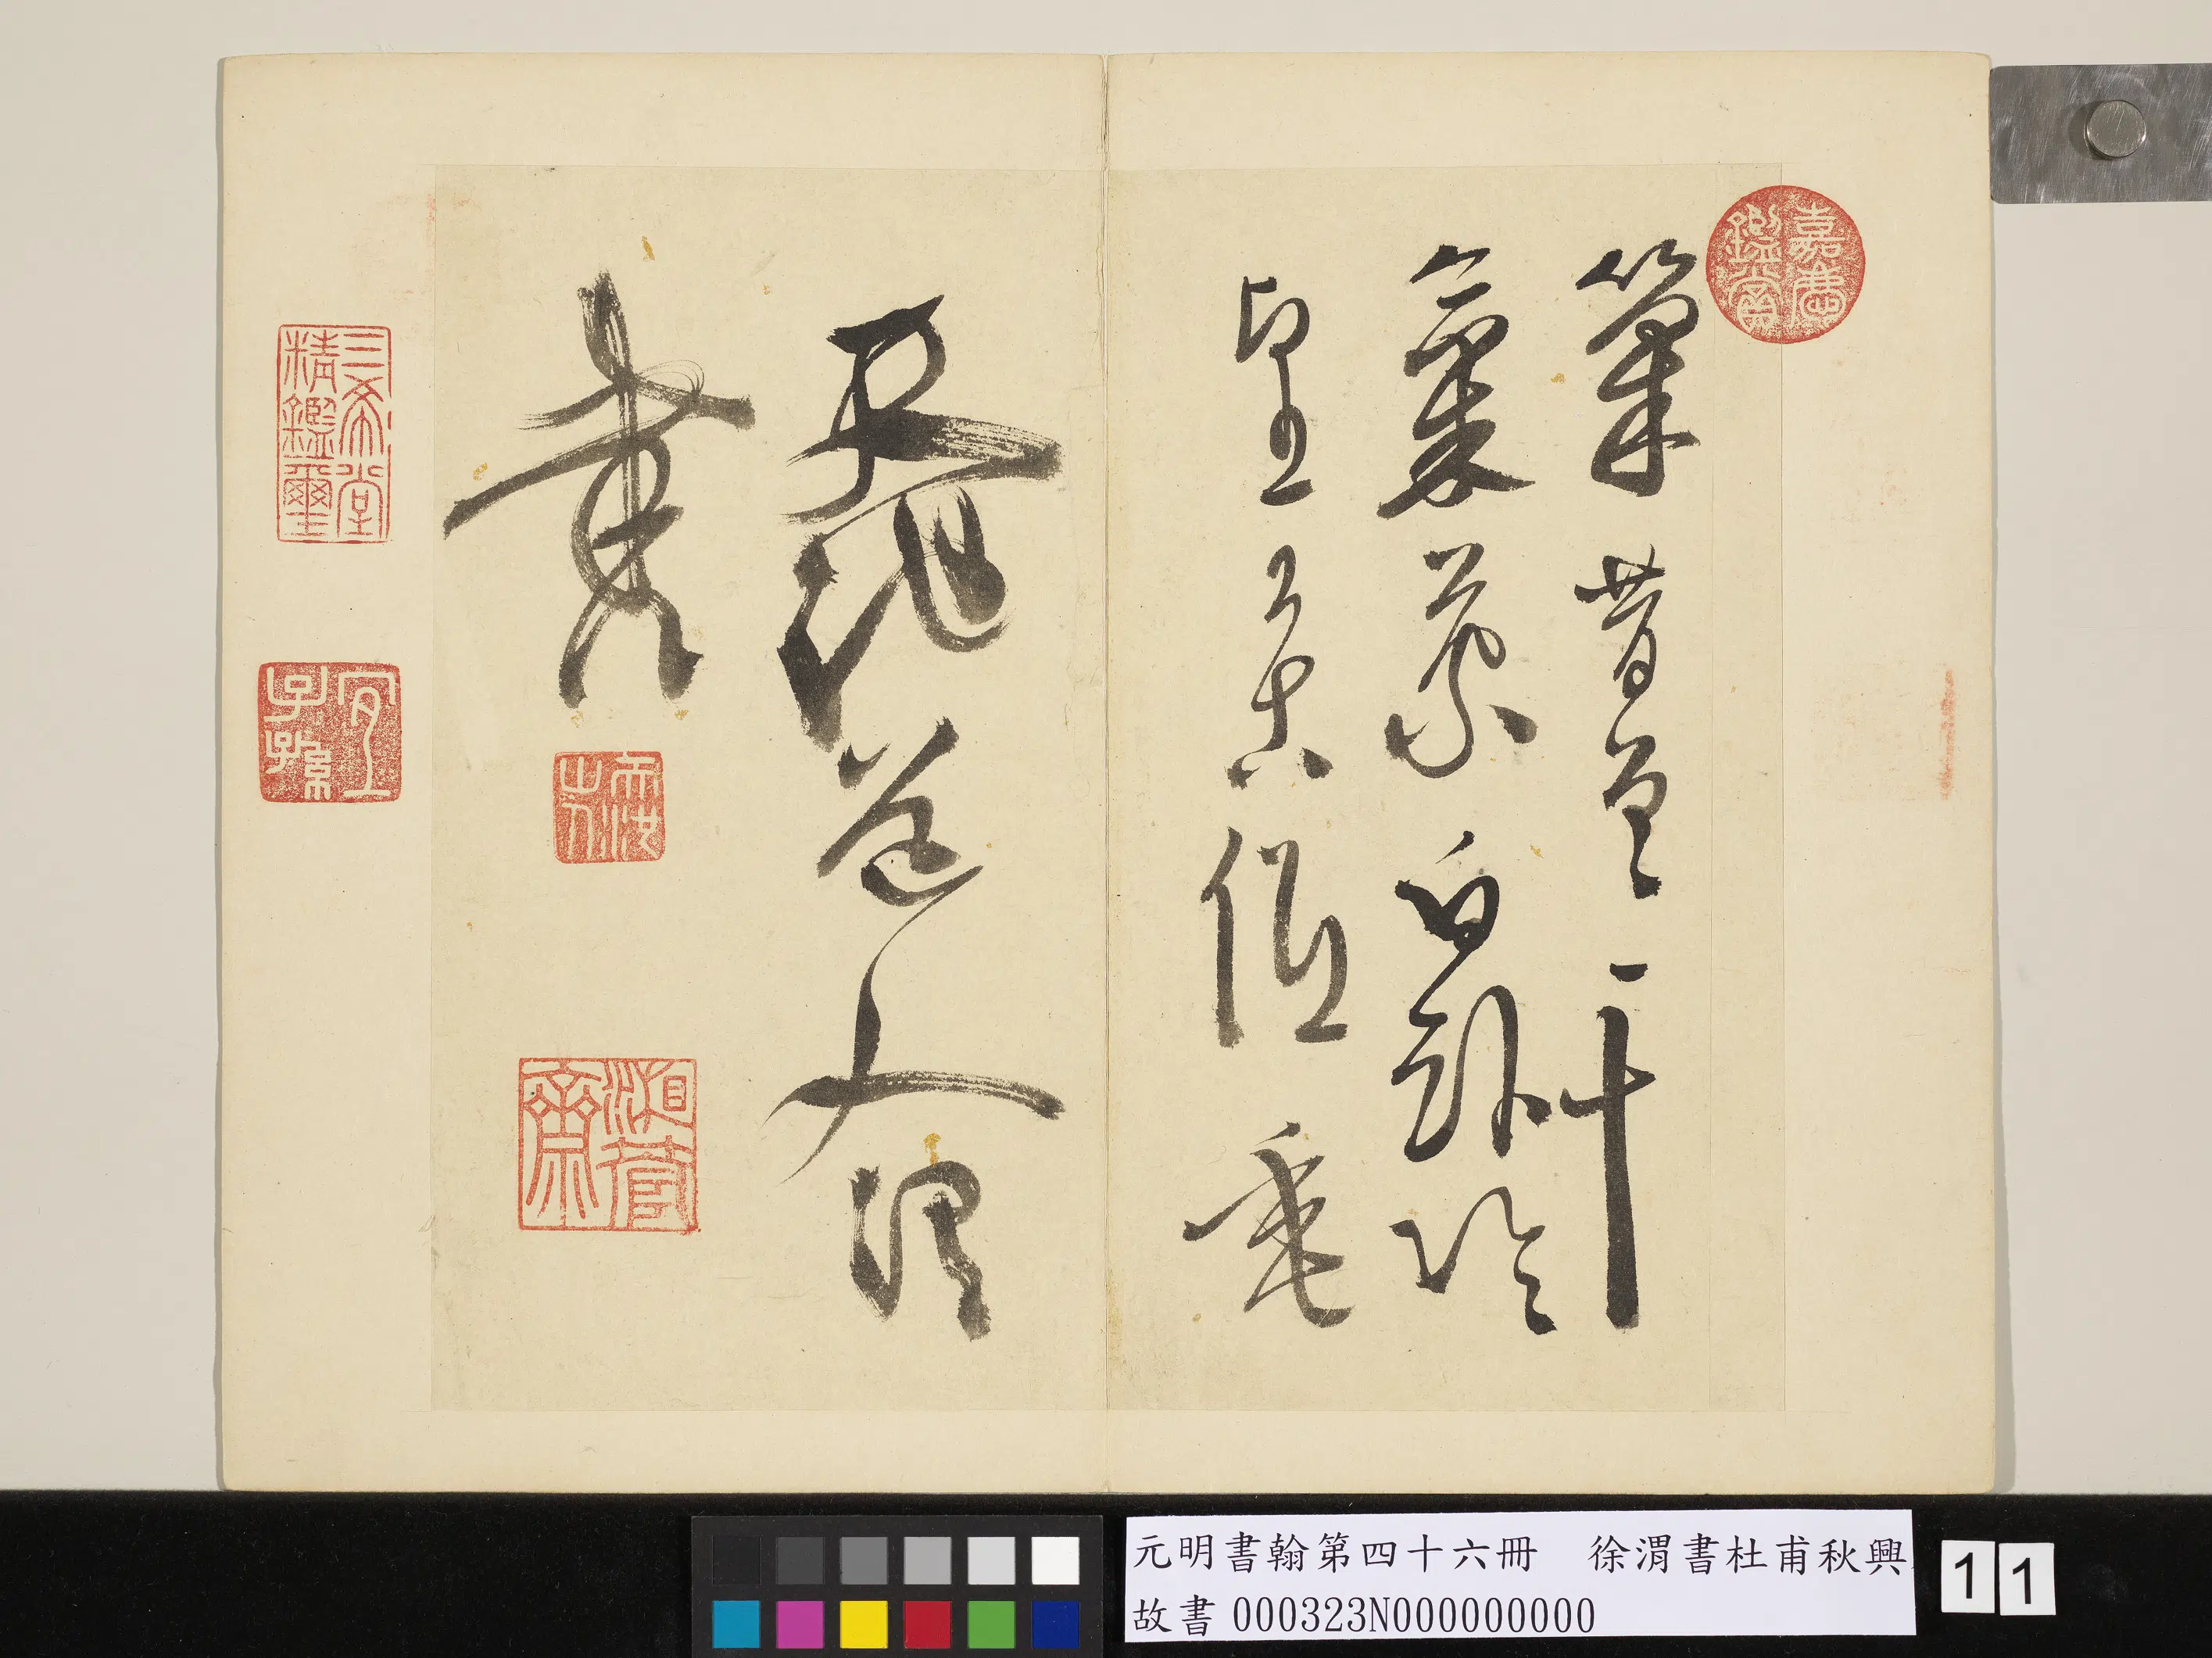 嘉慶鑑賞
筆昔曾干
氣象白頭吟
望苦低垂
天池道人渭
書
天池山人
湘管齋
三希堂精鑑璽
宜子孫
元明書翰第四十六冊　徐渭書杜甫秋興
故書 000323N000000000
11